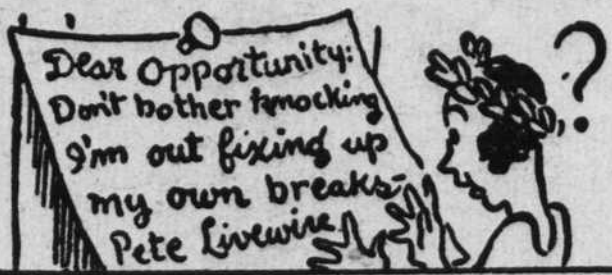 Dear Opportunity:
Don't bother knocking
I'm out fixing up
my own breaks-
Pete Livewire
?